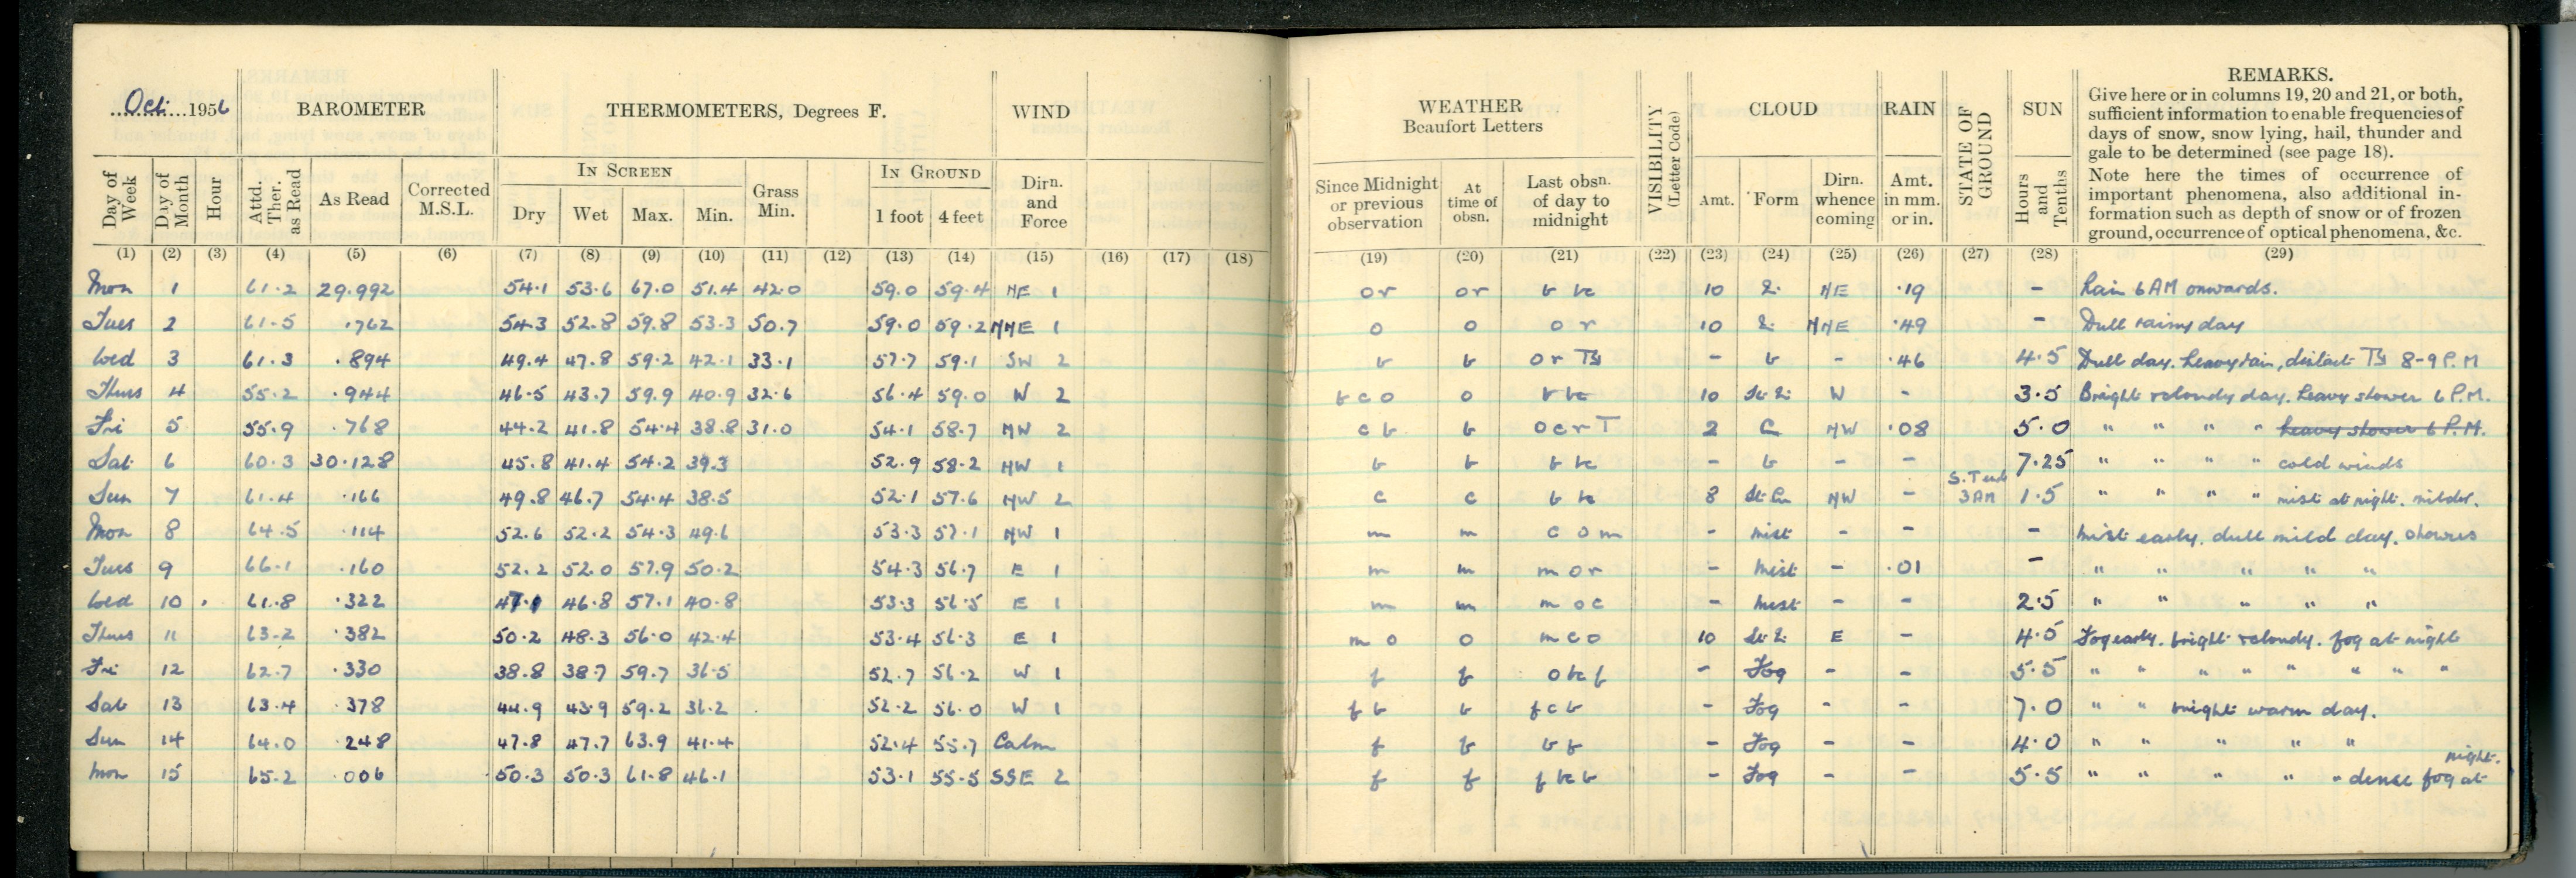 Oct. 1956 BAROMETER THERMOMETERS, Degrees F. WIND
IN SCREEN IN GROUND
Day of Week Day of Month Hour Attd. Ther. as Read As Read Corrected M.S.L. Dry Wet Max. Min. Grass Min. 1 foot 4 feet Dirn. and Force
(1) (2) (3) (4) (5) (6) (7) (8) (9) (10) (11) (12) (13) (14) (15) (16) (17) (18)
Mon 1 61.2 29.992 54.1 53.6 67.0 51.4 42.0 59.0 59.4 NE 1
Tues 2 61.5 .762 54.3 52.8 59.8 53.3 50.7 59.0 59.2 NNE 1
Wed 3 61.3 .894 49.4 47.8 59.2 42.1 33.1 57.7 59.1 SW 2
Thurs 4 55.2 .944 46.5 43.7 59.9 40.9 32.6 56.4 59.0 W 2
Fri 5 55.9 .768 44.2 41.8 54.4 38.8 31.0 54.1 58.7 NW 2
Sat 6 60.3 30.128 45.8 41.4 54.2 39.3 52.9 58.2 NW 1
Sun 7 61.4 .166 49.8 46.7 54.4 38.5 52.1 57.6 NW 2
Mon 8 64.5 .114 52.6 52.2 54.3 49.6 53.3 57.1 NW 1
Tues 9 66.1 .160 52.2 52.0 57.9 50.2 54.3 56.7 E 1
Wed 10 61.8 .322 46.8 57.1 40.8 53.3 56.5 E 1
Thurs 11 63.2 .382 50.2 48.3 56.0 42.4 53.4 56.3 E 1
Fri 12 62.7 .330 38.8 38.7 59.7 36.5 52.7 56.2 W 1
Sat 13 63.4 .378 44.9 43.9 59.2 36.2 52.2 56.0 W 1
Sun 14 64.0 .248 47.8 47.7 63.9 41.4 52.4 55.7 Calm
Mon 15 65.2 .006 50.3 50.3 61.8 46.1 53.1 55.5 SSE 2
WEATHER Beaufort Letters VISIBILITY (Letter Code) CLOUD RAIN STATE OF GROUND SUN REMARKS.
Give here or in columns 19, 20 and 21, or both,
sufficient information to enable frequencies of
days of snow, snow lying, hail, thunder and
gale to be determined (see page 18).
Note here the times of occurrence of
important phenomena, also additional in-
formation such as depth of snow or of frozen
ground, occurrence of optical phenomena, &c.
Since Midnight or previous observation At time of obsn. Last obsn. of day to midnight Amt. Form Dirn. whence coming Amt. in mm. or in. Hours and Tenths
(19) (20) (21) (22) (23) (24) (25) (26) (27) (28) (29)
or or b bc 10 NE .19 - Rain 6AM onwards.
o o o r 10 NNE .49 - Dull rainy day
b b or - b - .46 4.5 Dull day. heavy rain, distant 8-9 P.M
bco o b bc 10 W - 3.5 Bright & cloudy day. heavy shower 6 P.M.
c b b o c r T 2 C NW .08 5.0 " " " " heavy shower 6 P.M.
b b b bc - b - - 7.25 " " " " cold winds
c c 8 St. Cu NW - S.T. ends 3AM 1.5 " " " " mist at night. milder.
m m c o m - mist - - - mist early. dull mild day. showers
m m m o r - mist - .01 - " " " " "
m m m o c - mist - - 2.5 " " " " "
m o o m c o 10 E - 4.5 Fog early. bright & cloudy. fog at night
f f o bc f - Fog - - 5.5 " " " " " " " "
f b b f c b - Fog - - 7.0 " " bright warm day.
f f - Fog - - 4.0 " " " " "
f f f bc b - Fog - - 5.5 " " " " " dense fog at night.